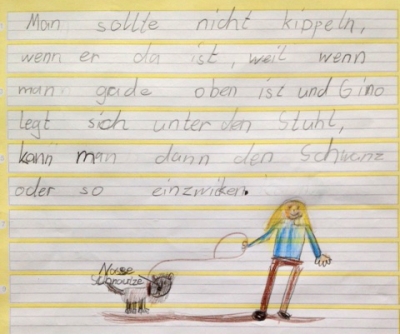 Man sollte nicht kippeln,
wenn er da ist, weil wenn
man grade oben ist und Gino
legt sich unter den Stuhl,
kann man dann den Schwanz
oder so einzwicken.
Nase
Schnauze